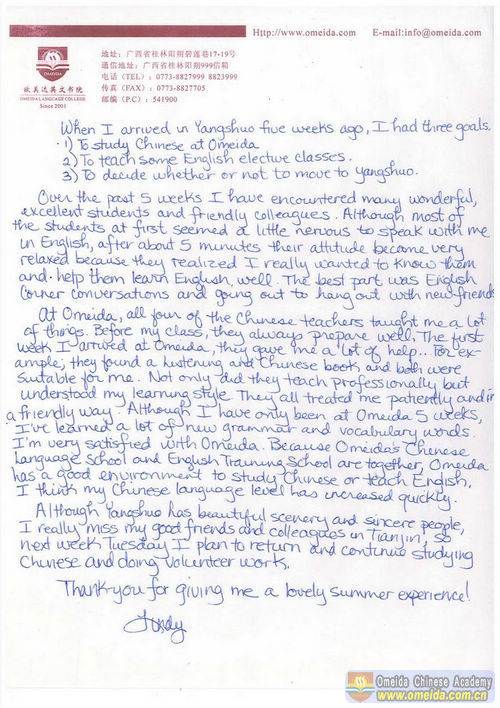 Http://www.omeida.com E-mail:info@omeida.com
OMEIDA
欧美达英文书院
OMEIDA LANGUAGE COLLEGE
Since 2001
地址：广西省桂林阳朔碧莲巷17-19号
通信地址：广西省桂林阳朔999信箱
电话（TEL）：0773-8827999 8823999
传真（FAX）：0773-8827705
邮编（P.C）：541900
When I arrived in Yangshuo five weeks ago, I had three goals.
1) To study Chinese at Omeida
2) To teach some English elective classes.
3) To decide whether or not to move to yangshuo.
Over the past 5 weeks I have encountered many wonderful,
excellent students and friendly colleagues. Although most of
the students at first seemed a little nervous to speak with me
in English, after about 5 minutes their attitude became very
relaxed because they realized I really wanted to know them
and help them learn English, well. The best part was English
Corner conversations and going out to hang out with new friends
At Omeida, all four of the Chinese teachers taught me a lot
of things. Before my class, they always prepare well. The first
week I arrived at Omeida, they gave me a lot of help... For ex-
ample, they found a listening and Chinese book and both were
suitable for me. Not only did they teach professionally but
understood my learning style. They all treated me patiently and in
a friendly way. Although I have only been at Omeida 5 weeks,
I've learned a lot of new grammar and vocabulary words.
I'm very satisfied with Omeida. Because Omeida's Chinese
Language School and English Training School are together, Omeida
has a good environment to study Chinese or teach English,
I think my Chinese language level has increased quickly.
Although Yangshuo has beautiful scenery and sincere people,
I really miss my good friends and colleagues in Tianjin, so
next week Tuesday I plan to return and continue studying
Chinese and doing volunteer work.
Thank you for giving me a lovely summer experience!
Omeida Chinese Academy
www.omeida.com.cn